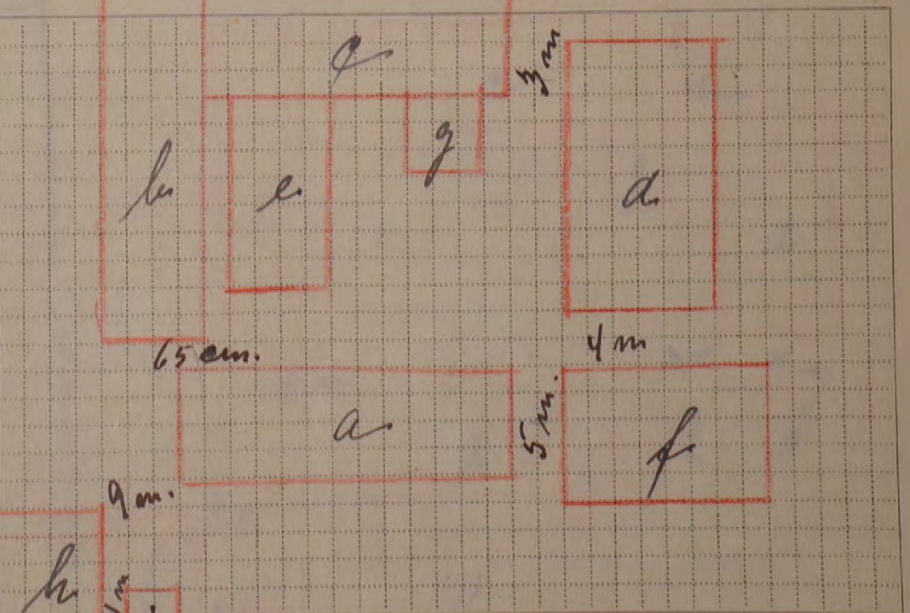 c
3 m
g
b
e
d
65 cm.
4 m
a
5 m.
f
9 m.
h